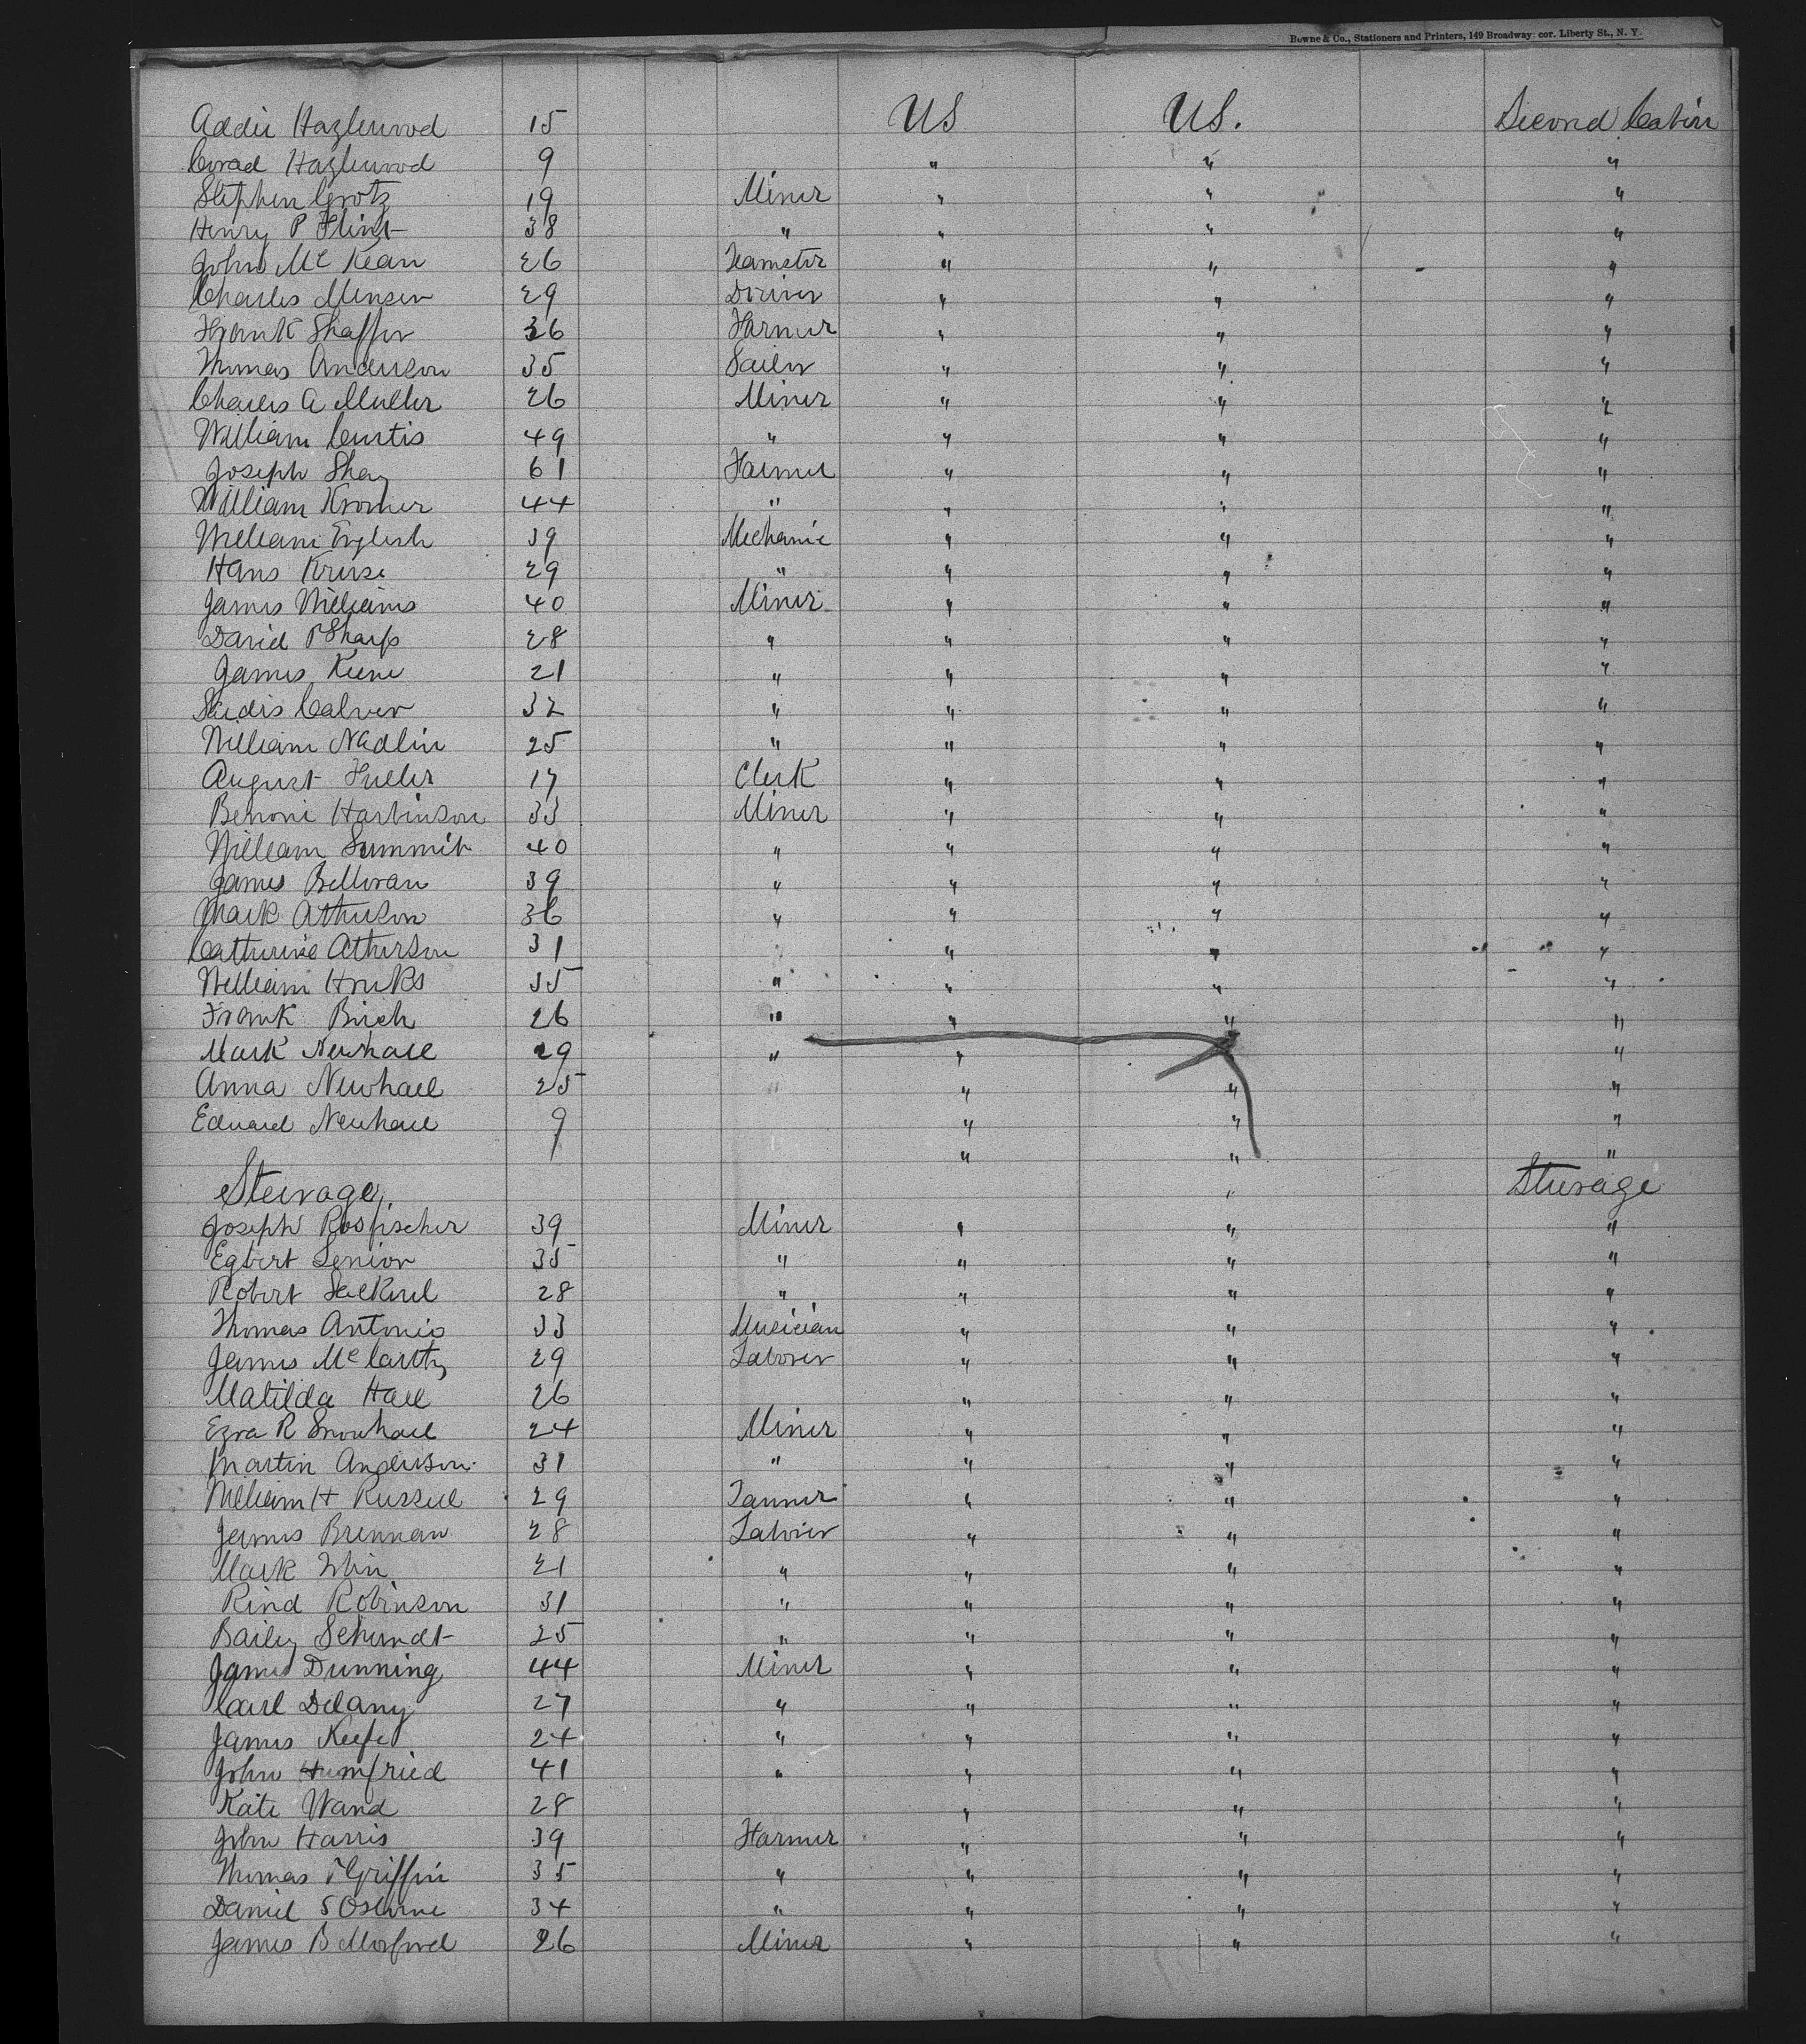 Bowne & Co., Stationers and Printers, 149 Broadway cor. Liberty St., N. Y.
Addie Hazlewood 15 US US. Second Cabin
Conrad Hazlewood 9 " " "
Stephen Grotz 19 Miner " " "
Henry P Flint 38 " " " "
John Mc Kean 26 Teamster " " "
Charles Menser 29 Driver " " "
Frank Shaffer 36 Farmer " " "
Thomas Anderson 35 Sailor " " "
Charles A Muller 26 Miner " " "
William Curtis 49 " " " "
Joseph Shay 61 Farmer " " "
William Kromer 44 " " " "
William English 39 Mechanic " " "
Hans Kruse 29 " " " "
James Williams 40 Miner " " "
David P Sharp 28 " " " "
James Keene 21 " " " "
Calver 32 " " " "
William Nadlin 25 " " " "
August Fuller 17 Clerk " " "
Benoni Harbinson 33 Miner " " "
William Summit 40 " " " "
James Belloran 39 " " " "
Mark Atherson 36 " " " "
Catherine Atherson 31 " " "
William Honks 35 " " " "
Frank Birch 26 " " " "
Mark Newhall 29 " " " "
Anna Newhall 25 " " "
Edward Newhall 9 " " "
" " "
Steerage, " Steerage
Joseph Rosfischer 39 Miner " " "
Egbert Senior 35 " " " "
Robert 28 " " " "
Thomas Antonio 33 Musician " " "
James McCarthy 29 Laborer " " "
Matilda Hall 26 " " "
Ezra R Snowhall 24 Miner " " "
Martin Anderson 31 " " " "
William H Russell 29 Tanner " " "
James Brennan 28 Laborer " " "
Mark 21 " " " "
Rind Robinson 31 " " " "
Bailey Schmidt 25 " " " "
James Dunning 44 Miner " " "
Carl Delany 27 " " " "
James Keefe 24 " " " "
John Humfried 41 " " " "
Kate Wand 28 " " "
John Harris 39 Farmer " " "
Thomas P Griffin 35 " " " "
Daniel S Osborne 34 " " " "
James B Morford 26 Miner " " "